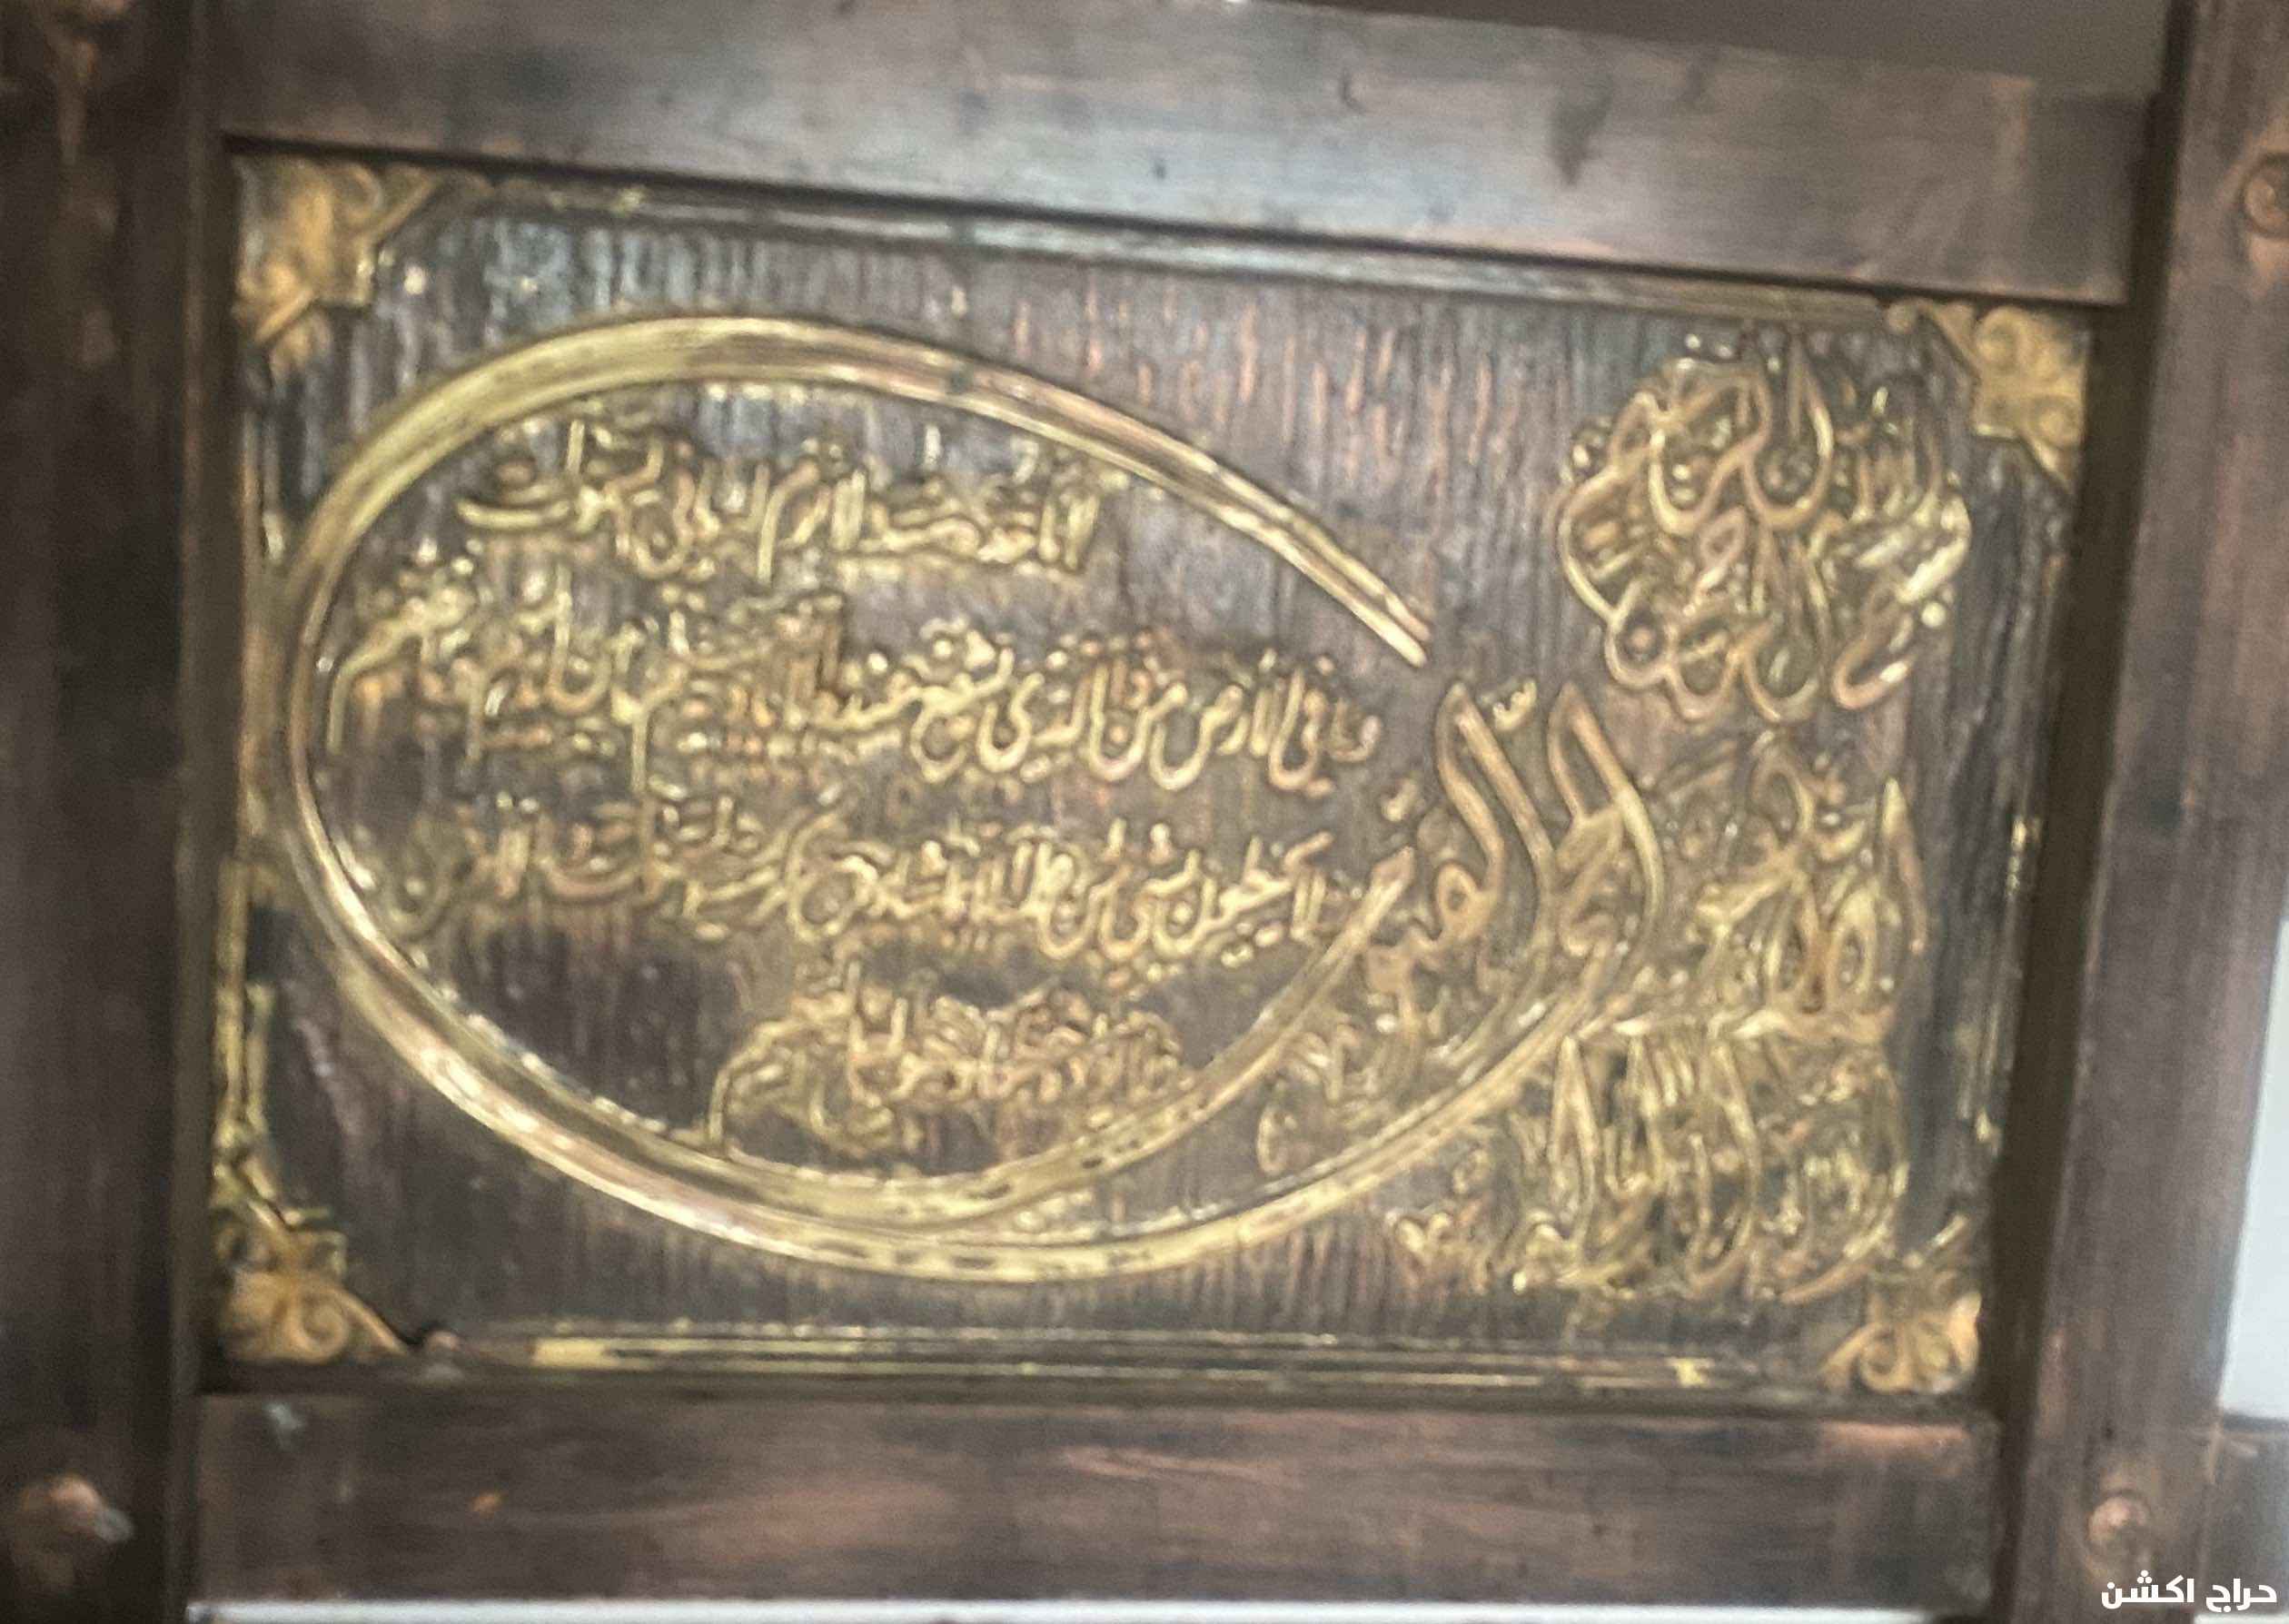 بسم الله الرحمن الرحيم
الله لا إله إلا هو
الحي القيوم
لا تأخذه سنة ولا نوم له ما في السموات
وما في الأرض من ذا الذي يشفع عنده إلا بإذنه يعلم ما بين أيديهم وما خلفهم
ولا يحيطون بشيء من علمه إلا بما شاء وسع كرسيه السموات والأرض
ولا يؤده حفظهما وهو العلي العظيم
حراج اكشن